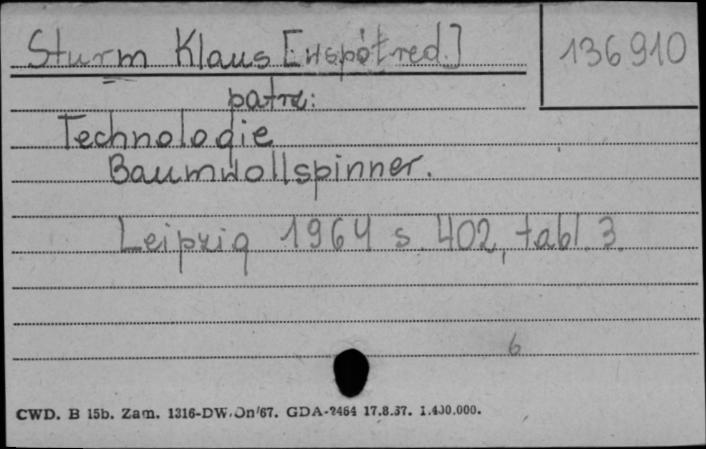 Sturm Klaus [współred.]
136910
patrz:
Technologie
Baumwollspinner.
Leipzig 1964 s. 402, tabl. 3.
6
CWD. B 15b. Zam. 1316-DW/Dn/67. GDA-2464 17.8.67. 1.400.000.